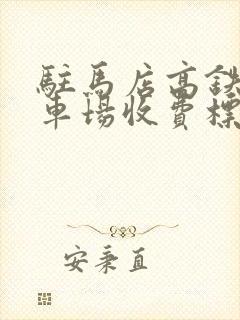 駐馬店高鐵
車場收費標
安秉直